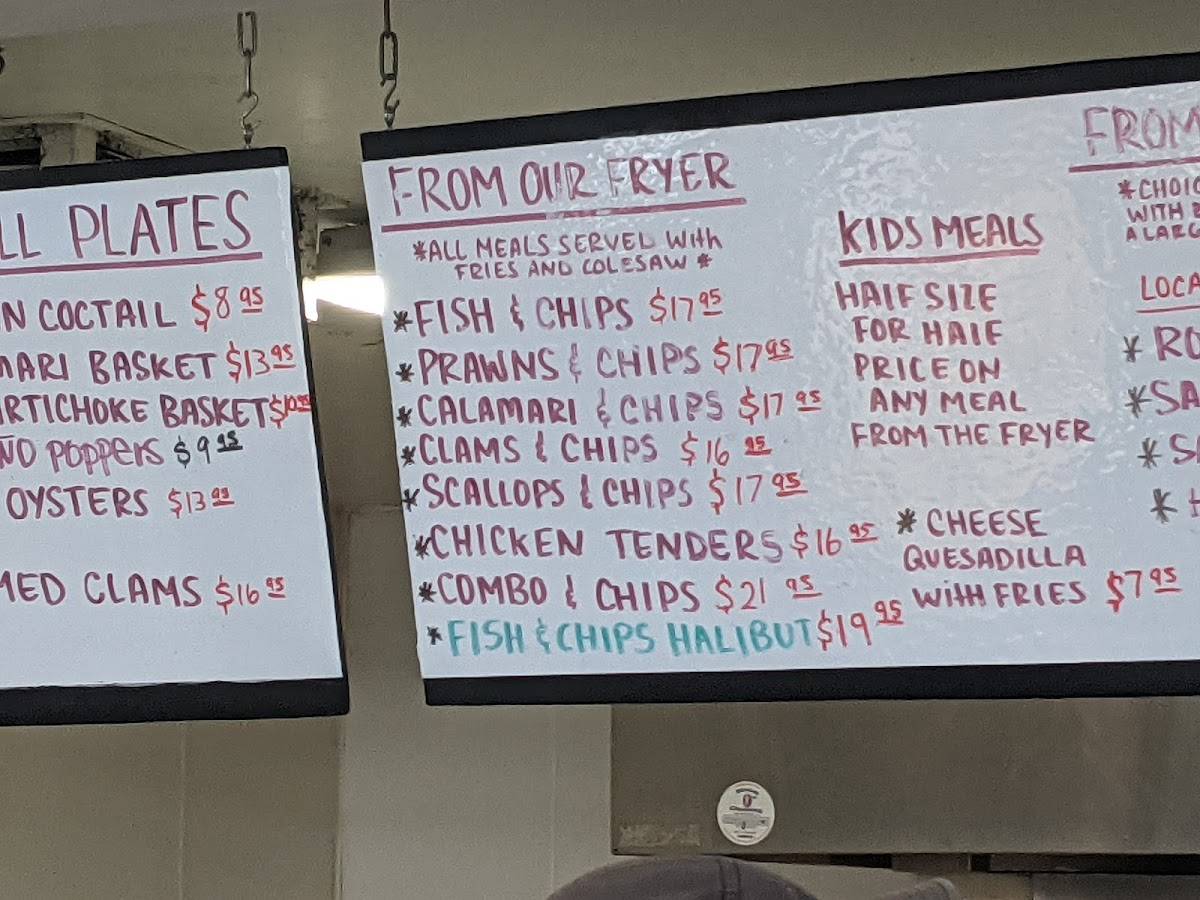 LL PLATES
N COCTAIL $8 95
MARI BASKET $13 95
ARTICHOKE BASKET $10 95
NO POPPERS $9 95
OYSTERS $13 95
MED CLAMS $16 95
FROM OUR FRYER
*ALL MEALS SERVED WITH
FRIES AND COLESAW *
*FISH & CHIPS $17 95
*PRAWNS & CHIPS $17 95
*CALAMARI & CHIPS $17 95
*CLAMS & CHIPS $16 95
*SCALLOPS & CHIPS $17 95
*CHICKEN TENDERS $16 95
*COMBO & CHIPS $21 95
*FISH & CHIPS HALIBUT $19 95
KIDS MEALS
HALF SIZE
FOR HALF
PRICE ON
ANY MEAL
FROM THE FRYER
* CHEESE
QUESADILLA
WITH FRIES $7 95
FROM
*CHOIC
WITH
A LARG
LOCA
* RO
*SA
* S
*